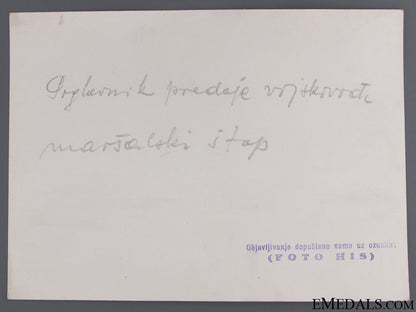 Poglavnik predaje vojskovođi
maršalski štap
Objavljivanje dopušteno samo uz oznaku:
(FOTO HIS)
EMEDALS.COM